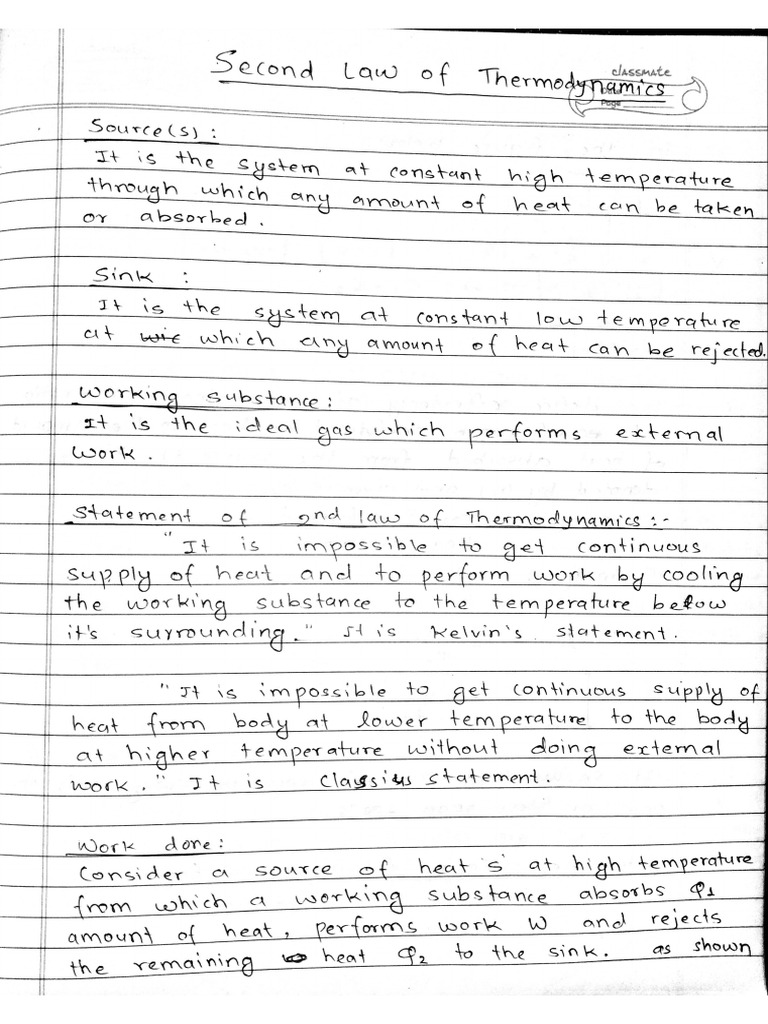 Second Law of Thermodynamics
classmate
Page
Source(s) :
It is the system at constant high temperature
through which any amount of heat can be taken
or absorbed.
Sink :
It is the system at constant low temperature
at which any amount of heat can be rejected.
Working substance :
It is the ideal gas which performs external
work.
Statement of 2nd law of Thermodynamics :-
"It is impossible to get continuous
supply of heat and to perform work by cooling
the working substance to the temperature below
it's surrounding." It is Kelvin's statement.
"It is impossible to get continuous supply of
heat from body at lower temperature to the body
at higher temperature without doing external
work." It is Classius statement.
Work done :
Consider a source of heat 's' at high temperature
from which a working substance absorbs Q1
amount of heat, performs work W and rejects
the remaining heat Q2 to the sink. as shown